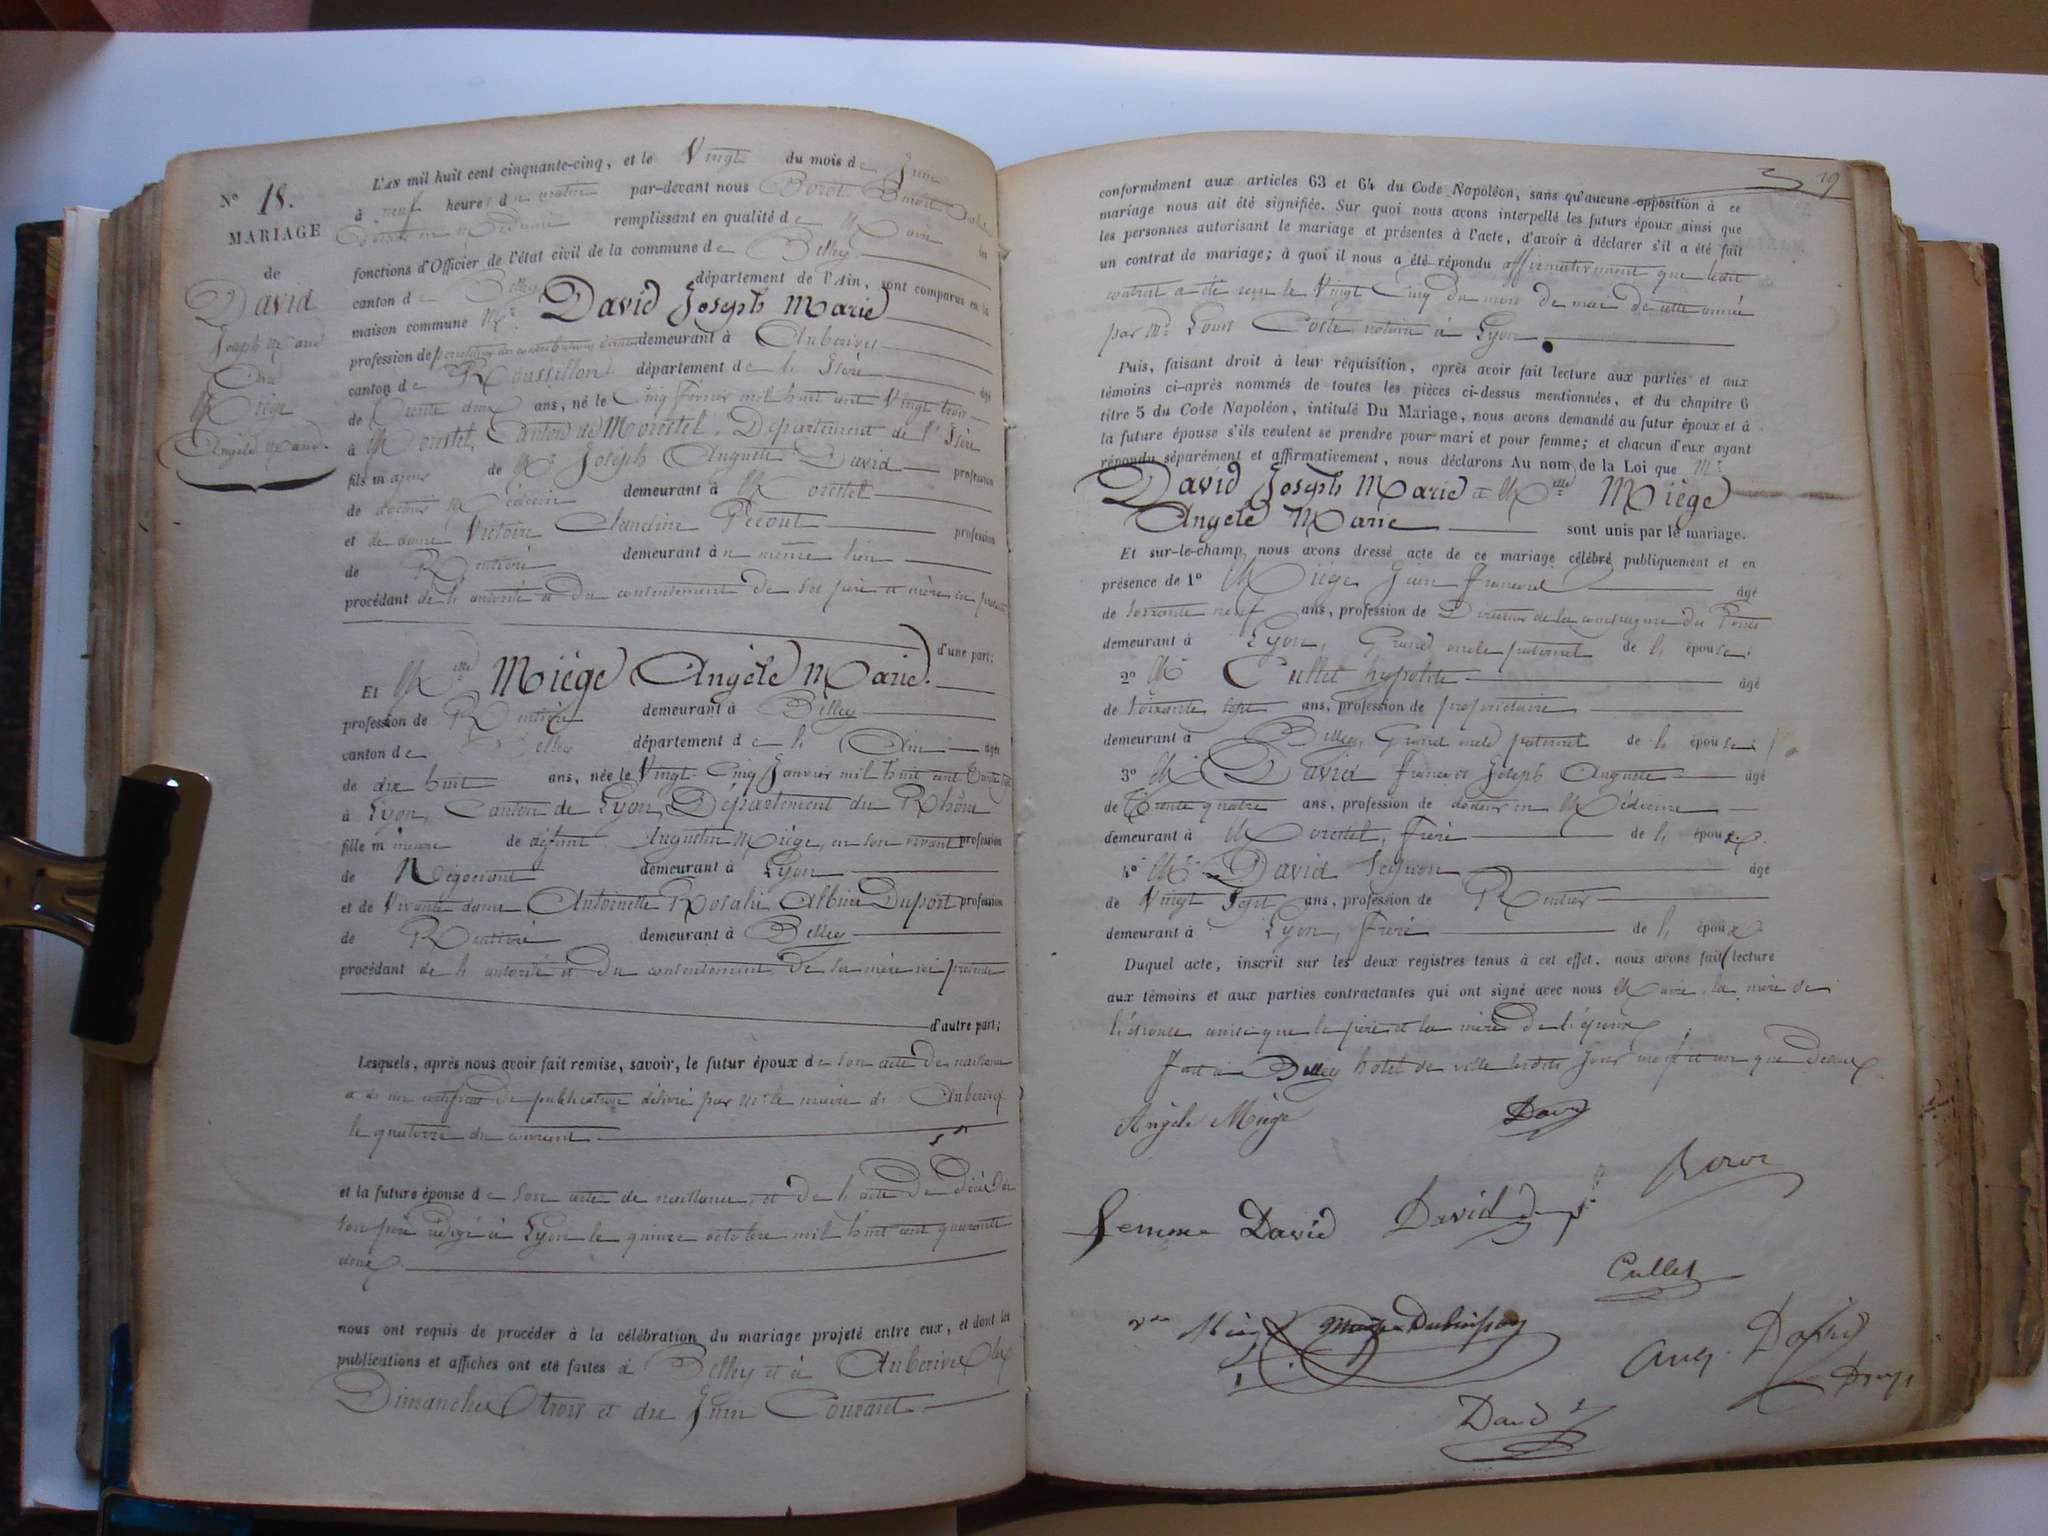 N° 18.
MARIAGE
de
David
Joseph Marie
Miège
Angèle Marie.
L'AN mil huit cent cinquante-cinq, et le Vingt du mois de Juin
à neuf heures du matin par-devant nous Borot Benoit
Docteur en Médecine remplissant en qualité de Maire les
fonctions d'Officier de l'état civil de la commune de Belley
canton de Belley département de l'Ain, sont comparus en la
maison commune Mr David Joseph Marie
profession de percepteur des contributions directes demeurant à Auberives
canton de Roussillon département de l'Isère âgé
de Trente deux ans, né le Cinq février mil huit cent Vingt trois
à Morestel, Canton de Morestel, Département de l'Isère
fils majeur de Mr Joseph Auguste David profession
de docteur Médecin demeurant à Morestel
et de dame Victoire Claudine Pécout profession
de Rentière demeurant à u même lieu
procédant de l'autorité et du consentement de ses père et mère ici présents
d'une part;
Et Melle Miège Angèle Marie.
profession de Rentière demeurant à Belley
canton de Belley département de l'Ain âgée
de dix huit ans, née le Vingt-Cinq Janvier mil huit cent Trente sept
à Lyon, Canton de Lyon, Département du Rhône
fille mineure de défunt Augustin Miège, en son vivant profession
de Négociant demeurant à Lyon
et de Vivante dame Antoinette Rosalie Albine Duport profession
de Rentière demeurant à Belley
procédant de l'autorité et du consentement de sa mère ici présente
d'autre part;
Lesquels, après nous avoir fait remise, savoir, le futur époux de son acte de naissance
et d'un certificat de publication délivré par Mr le maire d'Auberives
le quatorze du courant
et la future épouse de son acte de naissance, et de l'acte de décès de
son père rédigé à Lyon le quinze octobre mil huit cent quarante
deux.
nous ont requis de procéder à la célébration du mariage projeté entre eux, et dont les
publications et affiches ont été faites à Belley et à Auberives les
Dimanches trois et dix Juin Courant
19
conformément aux articles 63 et 64 du Code Napoléon, sans qu'aucune opposition à ce
mariage nous ait été signifiée. Sur quoi nous avons interpellé les futurs époux ainsi que
les personnes autorisant le mariage et présentes à l'acte, d'avoir à déclarer s'il a été fait
un contrat de mariage; à quoi il nous a été répondu affirmativement que ledit
contrat a été reçu le Vingt Cinq du mois de mai de cette année
par Me Louis Coste notaire à Lyon.
Puis, faisant droit à leur réquisition, après avoir fait lecture aux parties et aux
témoins ci-après nommés de toutes les pièces ci-dessus mentionnées, et du chapitre 6
titre 5 du Code Napoléon, intitulé Du Mariage, nous avons demandé au futur époux et à
la future épouse s'ils veulent se prendre pour mari et pour femme; et chacun d'eux ayant
répondu séparément et affirmativement, nous déclarons Au nom de la Loi que Mr
David Joseph Marie et Melle Miège
Angèle Marie sont unis par le mariage.
Et sur-le-champ nous avons dressé acte de ce mariage célébré publiquement et en
présence de 1° M Miège Jean François âgé
de soixante neuf ans, profession de Directeur de la compagnie des Ponts
demeurant à Lyon, Grand oncle paternel de l'épouse;
2° M Cullet hypolite âgé
de soixante sept ans, profession de propriétaire
demeurant à Belley, Grand oncle paternel de l'épouse;
3° M David François Joseph Auguste âgé
de Trente quatre ans, profession de docteur en Médecine
demeurant à Morestel, frère de l'époux.
4° Mr David âgé
de Vingt Sept ans, profession de Rentier
demeurant à Lyon, frère de l'époux.
Duquel acte, inscrit sur les deux registres tenus à cet effet, nous avons fait lecture
aux témoins et aux parties contractantes qui ont signé avec nous Maire, la mère de
l'épouse ainsi que le père et la mère de l'époux.
Fait à Belley hotel de ville lesdits jour mois et an que dessus
Angèle Miège David
femme David David Borot
Cullet
Vve Miège
Aug. David
David